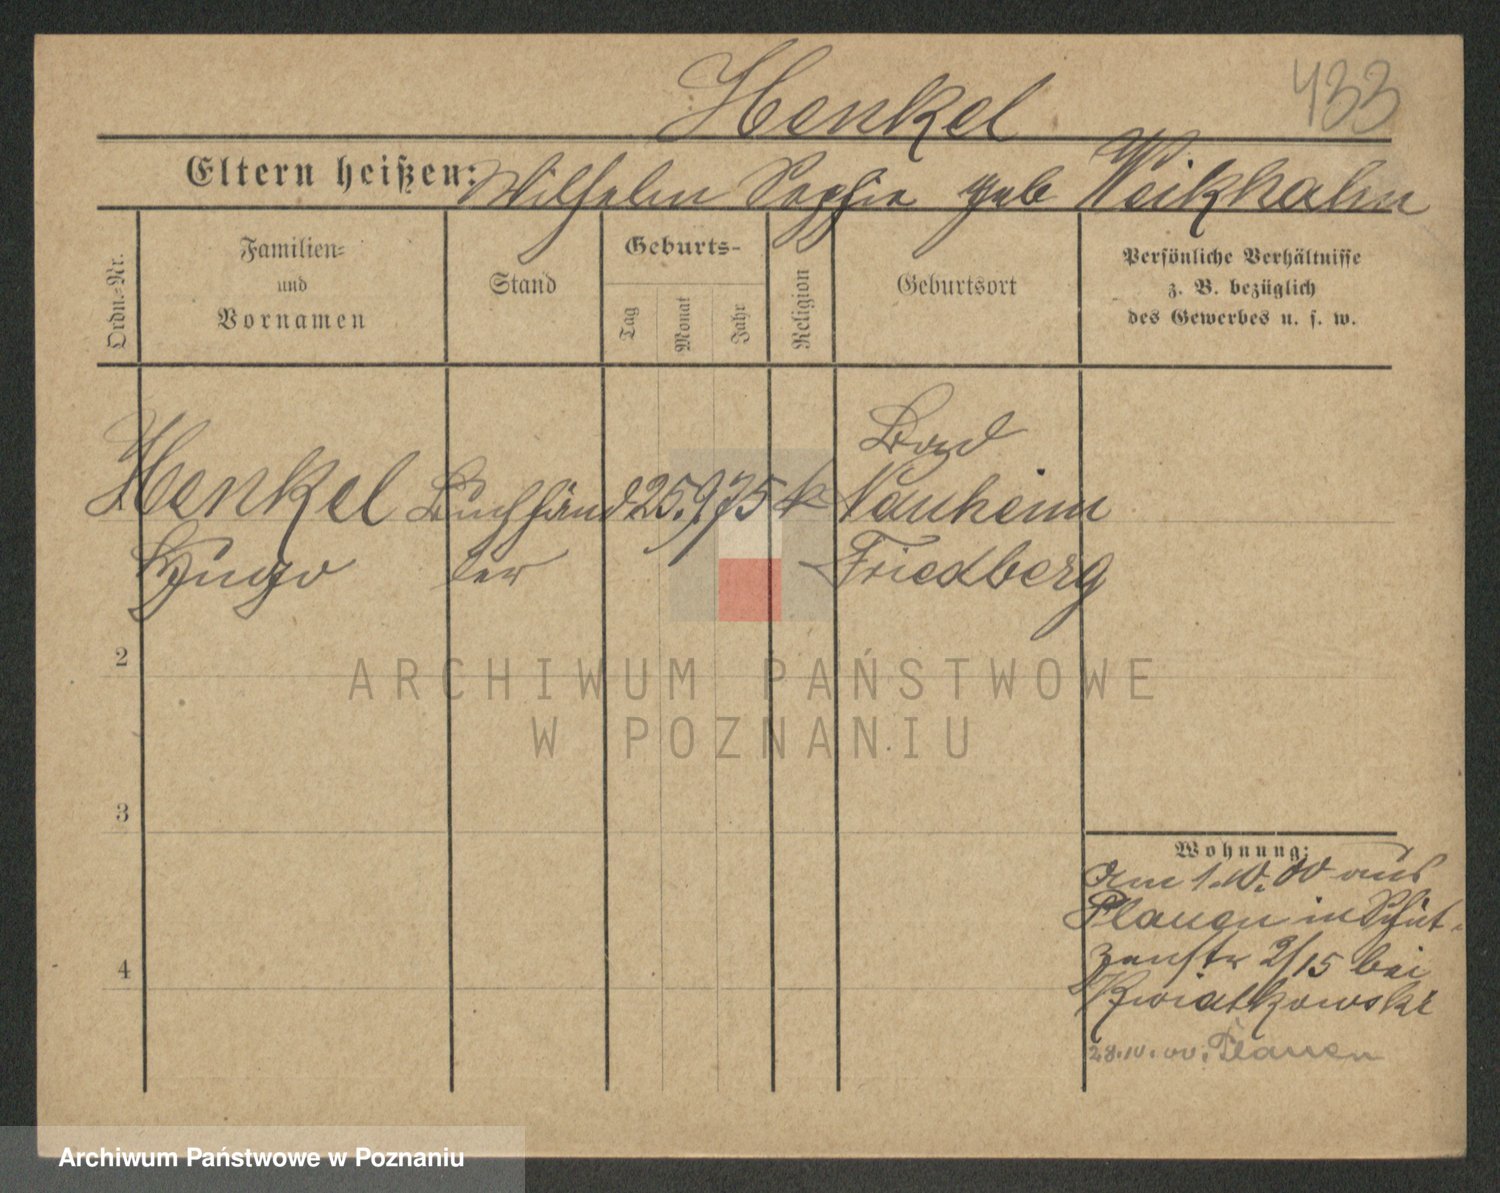 Henkel
433
Eltern heißen: Wilhelm Sophie geb Weikhalm
Ordn.-Nr.
Familien-
und
Vornamen
Stand
Geburts-
Tag
Monat
Jahr
Religion
Geburtsort
Persönliche Verhältnisse
z. B. bezüglich
des Gewerbes u. s. w.
Bad
Henkel Buchhänd 25.9.75 k Nauheim
Hugo ler Friedberg
2
ARCHIWUM PAŃSTWOWE
W POZNANIU
3
Wohnung:
Am 1.10.00 aus
Plauen in Schüt-
zenstr 2/15 bei
Kwiatkowski
4
28.10.00. Plauen
Archiwum Państwowe w Poznaniu